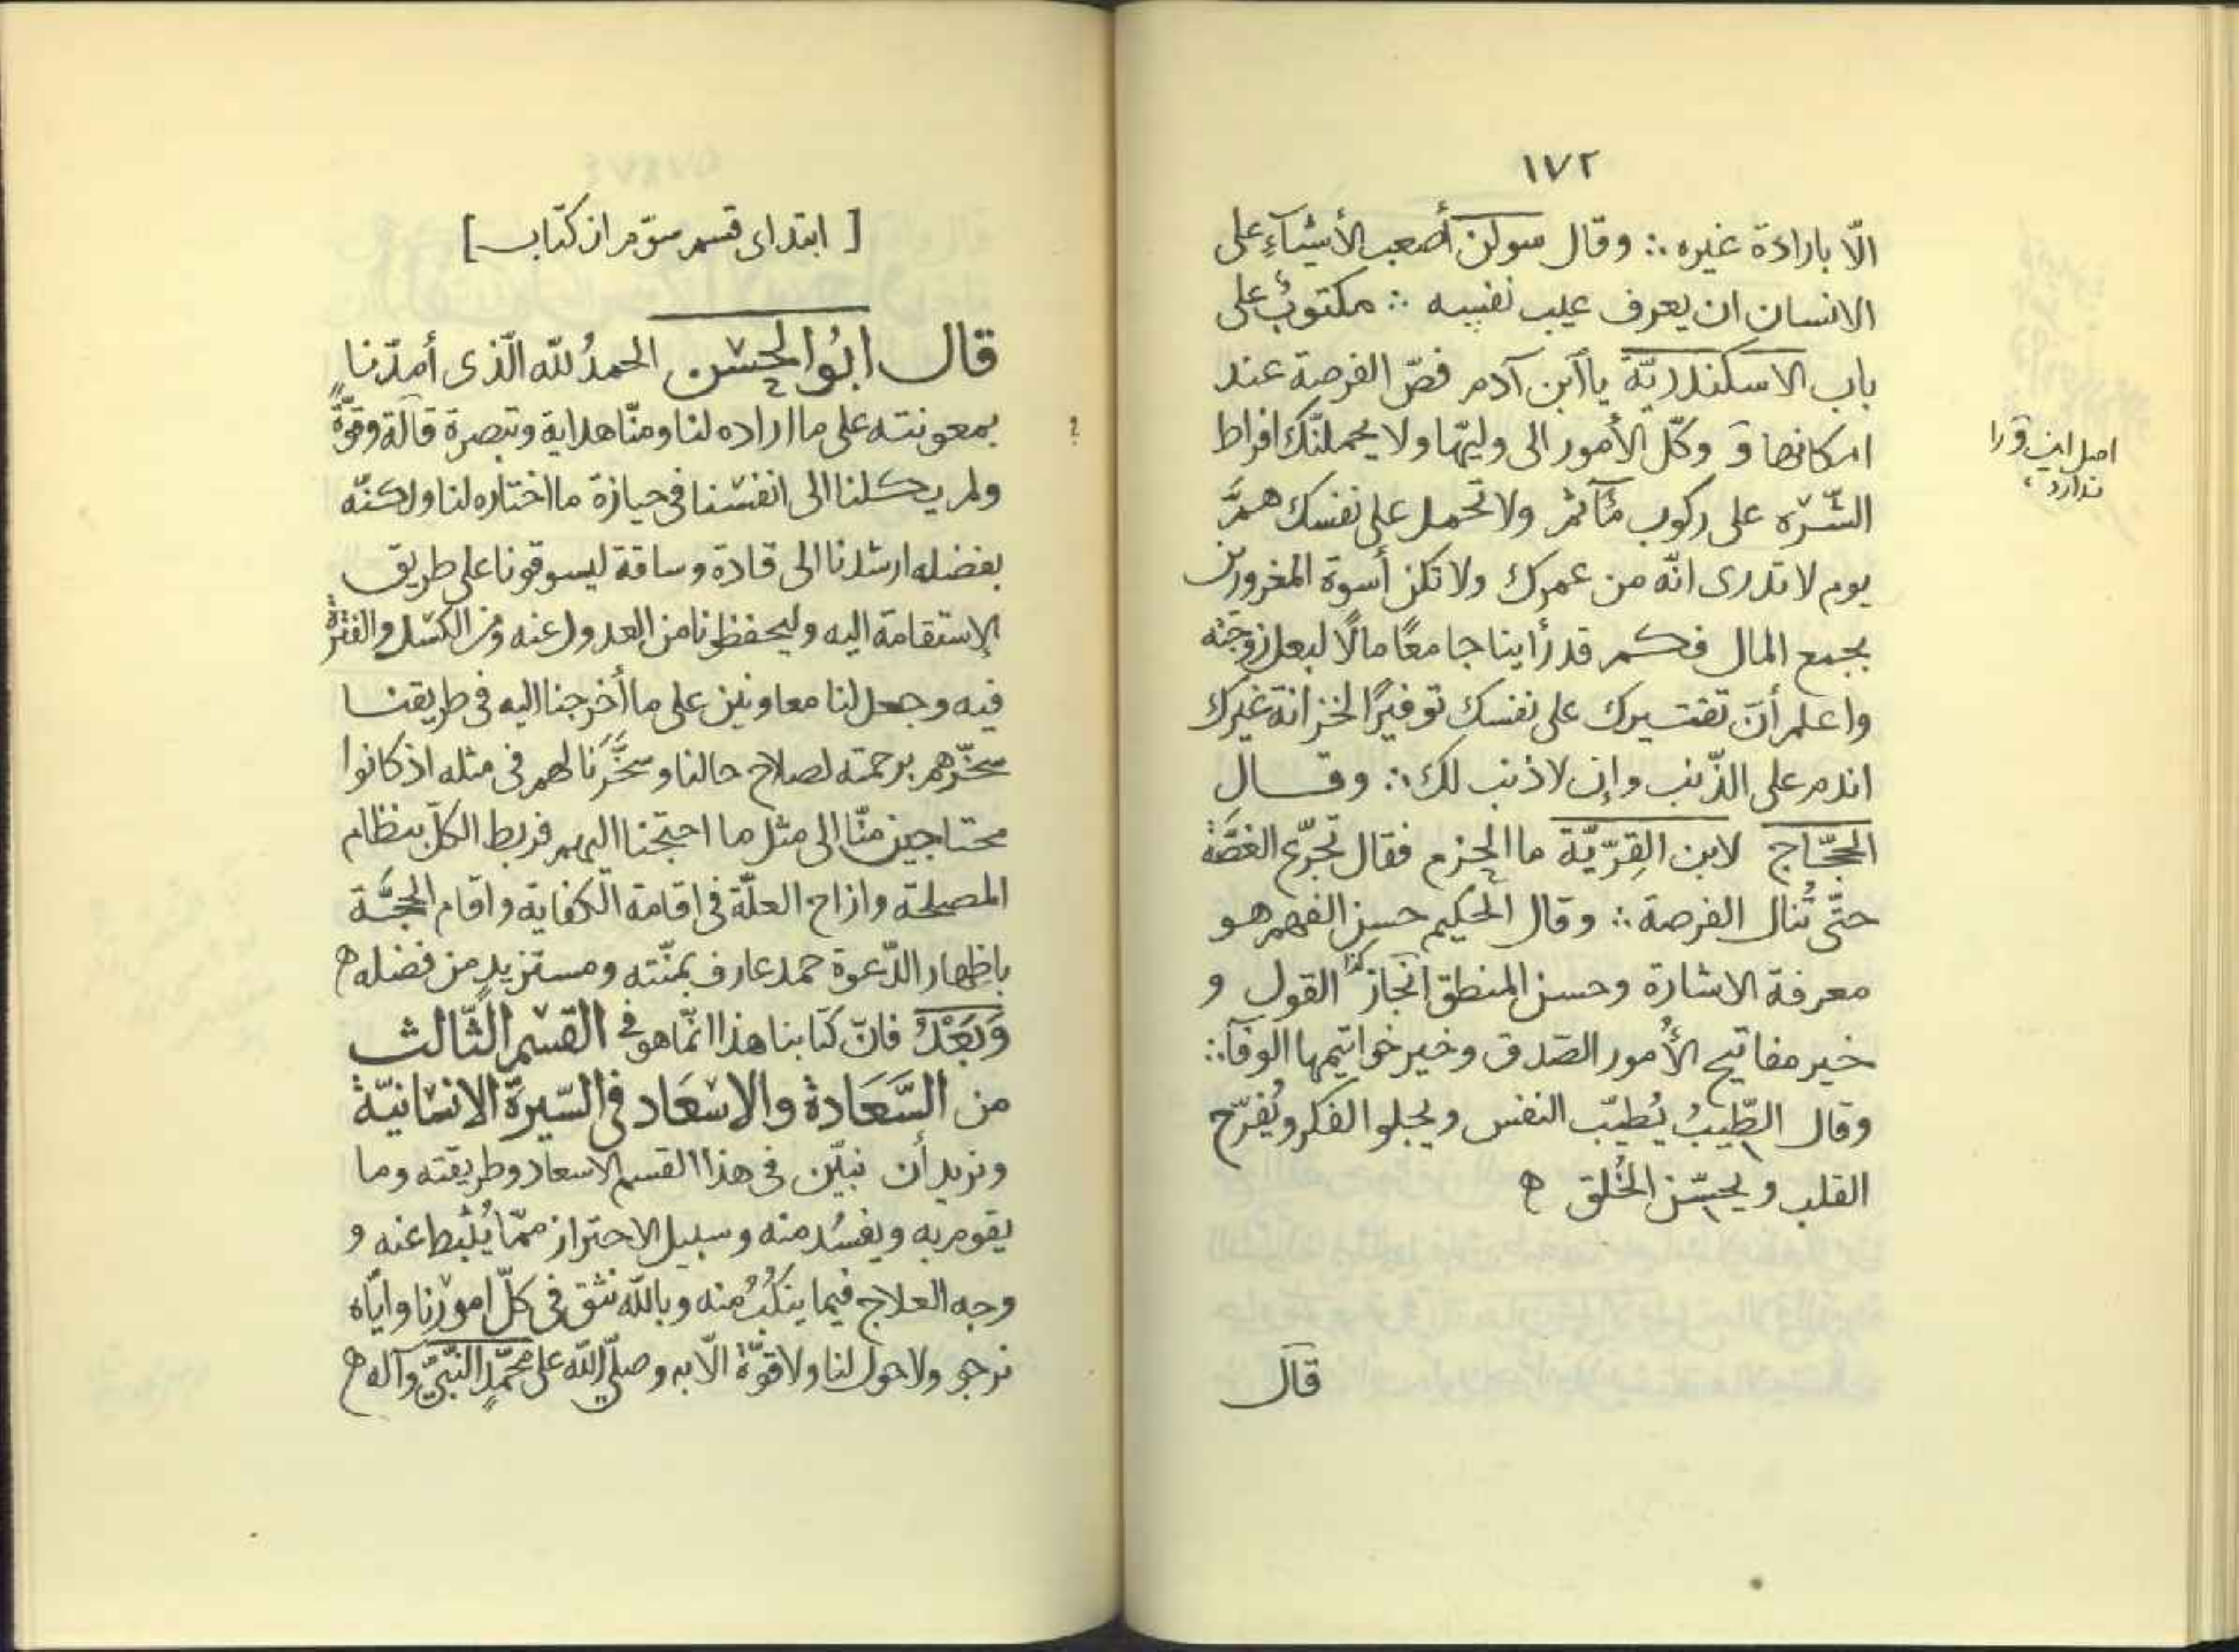 ١٧٢
الّا بارادة غيره ∴ وقال سولن أصعب الأشيآءِ على
الانسان ان يعرف عيب نفسه ∴ مكتوبٌ على
باب الاسكندريّة ياٱبن آدم فصّ الفرصة عند
امكانها وَ وكّل الأمور الى وليّها ولا يحملنّك افراط
الشّره على ركوب مٓأثم ولا تحمل على نفسك همَّ
يوم لا تدرى انّه من عمرك ولا تكن أسوة المغرورين
بجمع المال فكم قد رأينا جامعًا مالًا لبعل زوجته
واعلم أنّ تقتيرك على نفسك توفيرًا لخزانة غيرك
اندم على الذّنب وإن لا ذنب لك ∴ وقال
الحجّاج لابن القِرّيّة ما الحزم فقال تجرّع الغصّة
حتّى تُنال الفرصة ∴ وقال الحكيم حسن الفهم هو
معرفة الاشارة وحسن المنطق انجاز كذا القول و
خير مفاتيح الأُمور الصّدق وخير خواتيمها الوفآ ∴
وقال الطّيبُ يُطيّب النفس ويجلو الفكر ويُفرّح
القلب ويحسّن الخُلق ه
قال
اصل اين وَ را
ندارد،
[ ابتداى قسم سوّم از كتاب ]
قال ابُو الحسَن الحمدُ للّه الّذى أمدّنا
بمعونته على ما اراده لنا ومنّا هداية وتبصرة قآلة وقوّةً
؟
ولم يكلنا الى انفسنا فى حيازة ما اختاره لنا ولكنّه
بفضله ارشدنا الى قادة وساقة ليسوقونا على طريق
الإستقامة اليه وليحفظونا من العدول عنه ومن الكسل والفترة
فيه وجعل لنا معاونين على ما أخرجنا اليه فى طريقنا
سخّرهم برحمته لصلاح حالنا وسخَّرَنا لهم فى مثله اذ كانوا
محتاجين منّا الى مثل ما احتجنا اليهم فربط الكلّ بنظام
المصلحة وازاح العلّة فى اقامة الكفاية واقام الحجَّة
باظهار الدّعوة حمد عارف بمنّته ومستزيدٍ من فضله ه
وَبَعْدُ فانّ كتابنا هذا انّما هو فى القسم الثّالث
من السَّعَادة والاسْعَاد فى السّيرة الانسانيّة
ونريد أن نبيّن فى هذا القسم الاسعاد وطريقته وما
يقوم به ويفسُد منه وسبيل الاحتراز ممّا يُثبط عنه و
وجه العلاج فيما ينكُبُ منه وباللّه نثق فى كلّ امورنا وايّاه
نرجو ولا حول لنا ولا قوّة الّا به وصلّى اللّه على محمّدٍ النّبىّ وآله ه